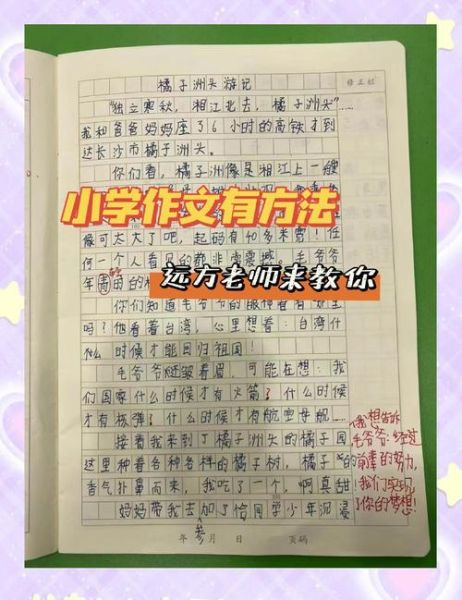 橘子洲头游记
修正栏
"独立寒秋，湘江北去，橘子洲头"……
我和爸爸妈妈座了6小时的高铁才到
达长沙市橘子洲头。
你们看，橘子洲像是湘江上一艘
小学作文有方法
像可太大了吧，起码有40多米高！任
何一个人看见的都非常震撼。毛爷爷
年青时的
远方老师来教你
你们知道毛爷爷的眼神看着
吗？他看着台湾，心里想着：台湾什
么时候才能回归祖国！
毛爷爷皱着眉，可能在想：我
们国家什么时候才有火箭？什么时候
才有核弹？什么时候才有航空母舰……
接着我来到了橘子洲头的橘子园
这里种着各种各样的橘子树，橘子的
香气扑鼻而来，我吃了一个，啊真甜！
妈妈带我去参加了恰同学少年沉浸
我想告诉
毛爷爷：经过
前辈的努力，
我们实现
了你的梦想！
年 月 日 页码